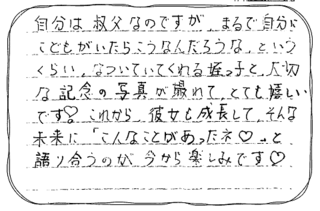 自分は叔父なのですが、まるで自分に
こどもがいたらこうなんだろうな、という
くらい、なついていてくれる姪っ子と、大切
な記念の写真が撮れて、とても嬉しい
です♡これから、彼女も成長して、そんな
未来に「こんなことがあったネ♡」と
語り合うのが今から楽しみです♡